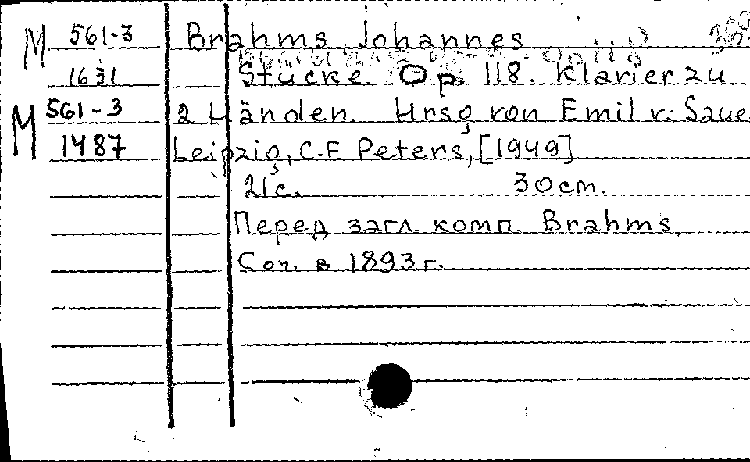 М 561-3 Brahms, Johannes
1631 Stücke. Op. 118. Klavier zu
М 561-3 2 Händen. Hrsg von Emil v. Saue
1487 Leipzig, C.F. Peters, [1949]
21с. 30cm.
Перед загл. комп. Brahms.
Соч. в 1893 г.